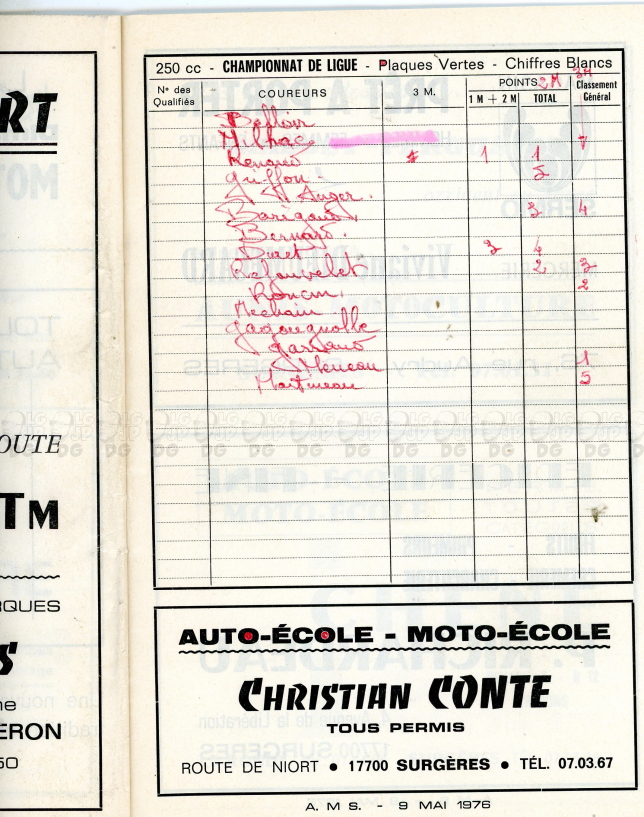 RT
OUTE
TM
RQUES
S
ne
ÉRON
50
250 cc - CHAMPIONNAT DE LIGUE - Plaques Vertes - Chiffres Blancs
Nº des Qualifiés COUREURS 3 M. POINTS 2M 3M Classement Général
1 M + 2 M TOTAL
Belloir
Milhac 7
Renaud 1 1
Griffon 5
Auger.
Barigaud. 3 4
Bernard.
Duret 3 4
Relouvelet 2 3
Roncin. 2
Mechain
Gagougnolle
Garnaud
Heneau 1
Martineau 5
AUTO-ÉCOLE - MOTO-ÉCOLE
CHRISTIAN CONTE
TOUS PERMIS
ROUTE DE NIORT • 17700 SURGÈRES • TÉL. 07.03.67
A. M S. - 9 MAI 1976